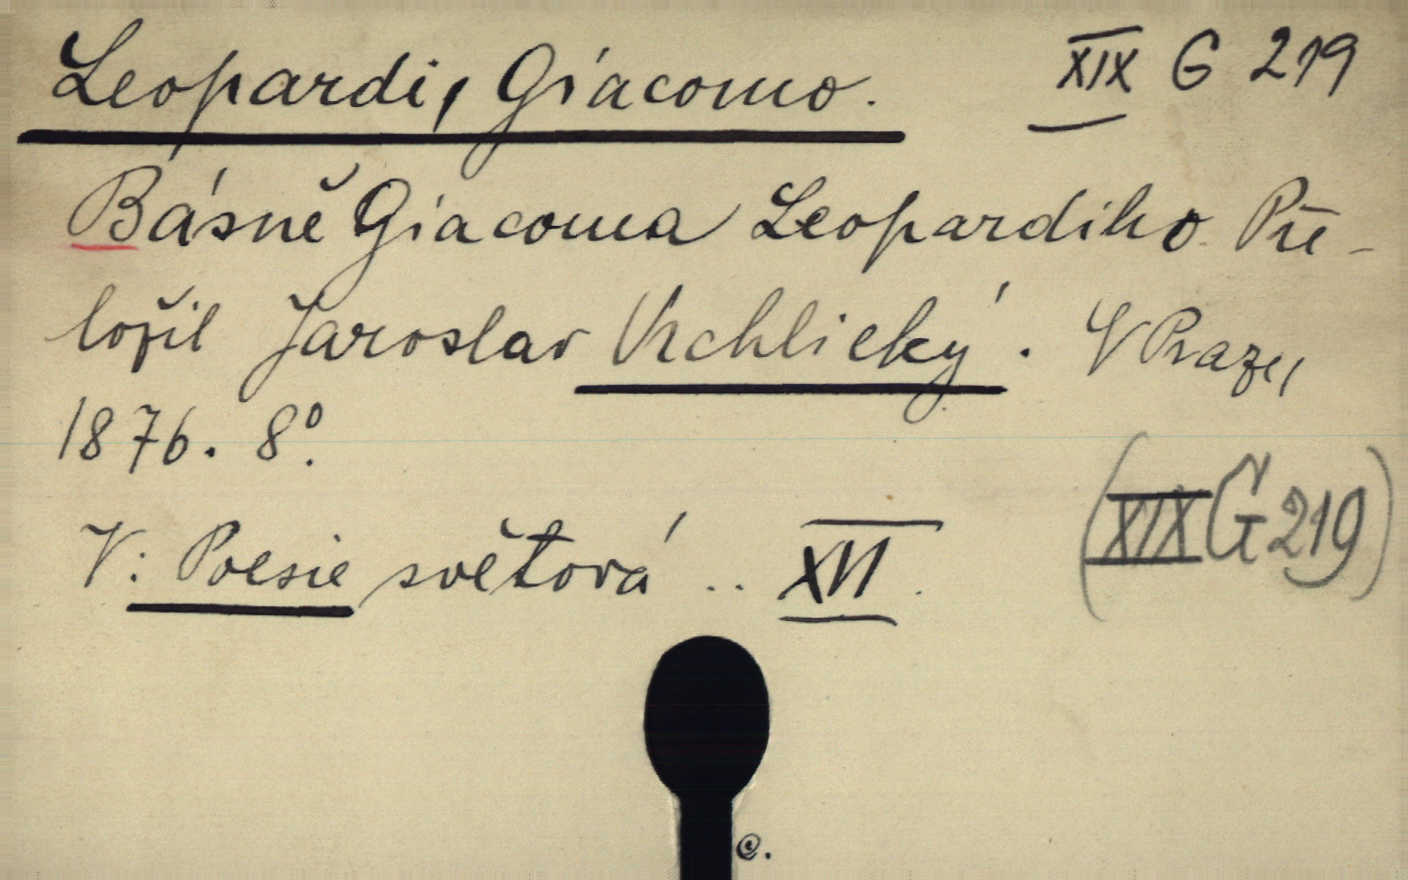 Leopardi, Giacomo. XIX G 219
Básně Giacoma Leopardiho. Pře-
ložil Jaroslav Vrchlický. V Praze,
1876. 8º.
(XIX G 219)
V: Poesie světová .. XVI.
e.